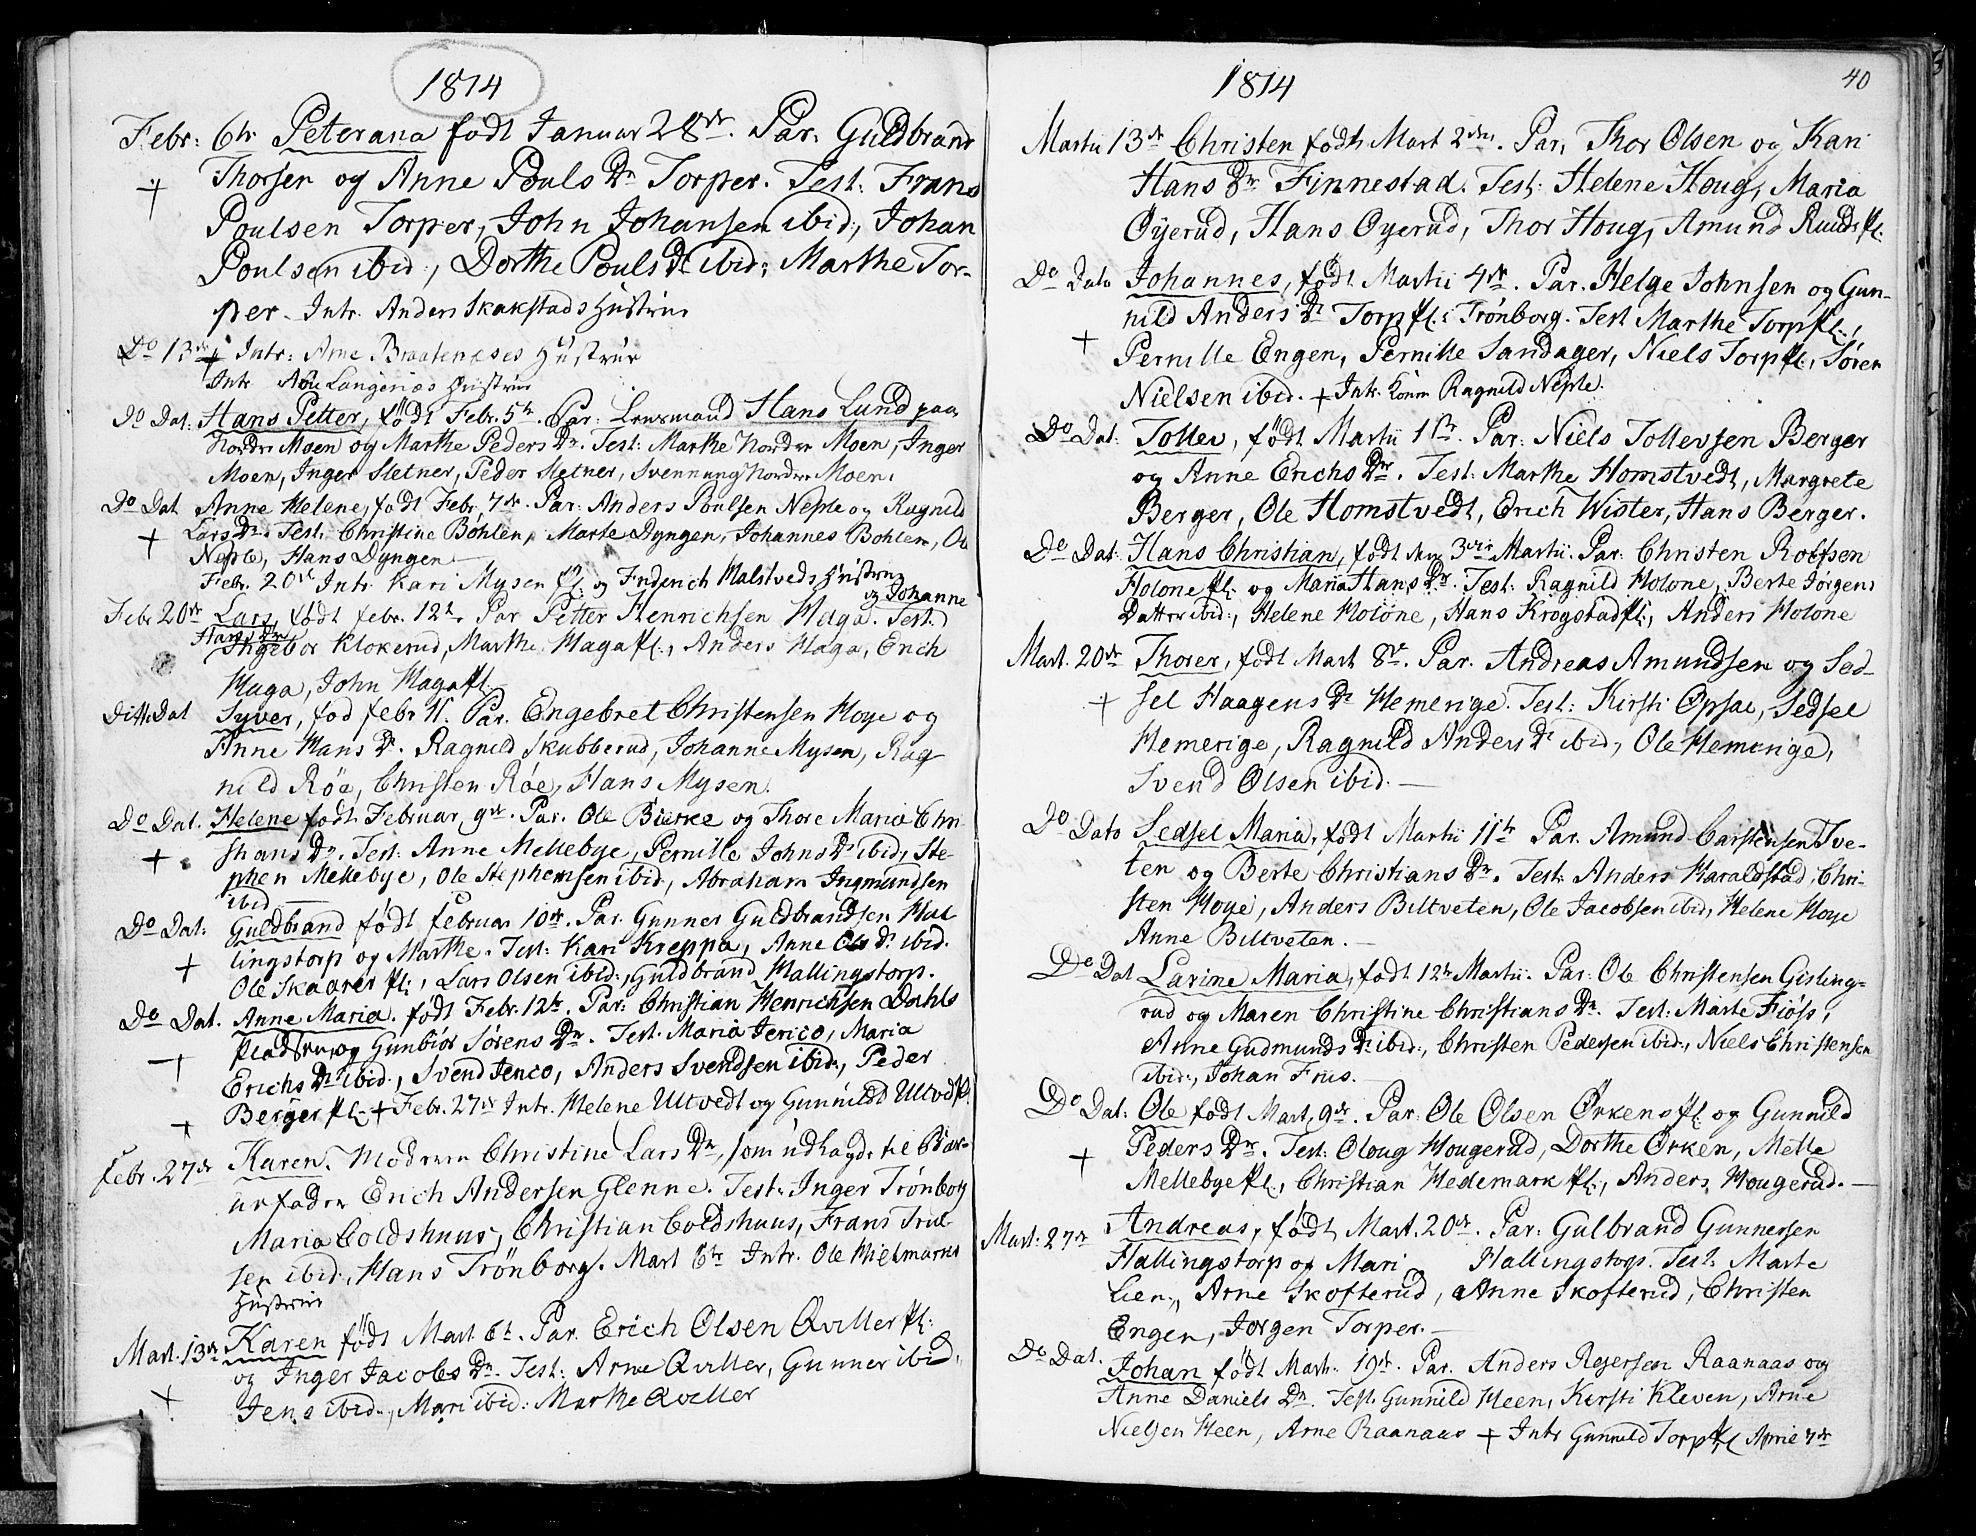 1814
Febr: 6te Peterana født Januar 28de. Par: Guldbrand
Thorsen og Anne Pouls Dr Torper. Test: Frans
Poulsen Torper, John Johansen ibid:, Johan
Poulsen ibid:, Dorthe Pouls Dr ibid:, Marthe Tor-
per. Intr. Anders Skakstads Hustrue
Do 13de + Intr: Arne Braatenæses Hustrue
Intr Langenæs Hustrue
Do Dat: Hans Petter, født Febr. 5te. Par: Lensmand Hans Lund paa
Nordre Moen og Marthe Peders Dr. Test: Marthe Nordre Moen, Inger
Moen, Inger Sletner, Peder Sletner, Svennung Nordre Moen.
Do Dat Anne Helene, født Febr. 7de. Par: Anders Poulsen Nesle og Ragnild
Lars Dr. Test: Christine Bohlen, Marte Dyngen, Johannes Bohlen, Ole
Nesle, Hans Dyngen
Febr. 20de Intr Kari Mysen Pl: og Friderich Malstveds Hustrue
og Johanne
Febr 20de Lars, født febr. 12te Par Petter Henrichsen Haga. Test.
Hans Dr
Ingebor Klokerud, Marthe Haga Pl:, Anders Haga, Erich
Haga, John Haga Pl:
Ditto Dat Syver, fød febr 11. Par. Engebret Christensen Hoye og
Anne Hans Dr. Ragnild Skubberud, Johanne Mysen, Rag
nild Røe, Christen Røe, Hans Mysen.
Do Dat. Helene født Februar 9de. Par. Ole Bierke og Thore Maria Chri
stians Dr. Test: Anne Mellebye, Pernille Johns Dr ibid, Ste-
phen Mellebye, Ole Stephensen ibid, Abraham Ingmundsen
ibid
Do Dat: Guldbrand født februar 10de. Par. Gunner Guldbrandsen Hal
lingstorp og Marthe. Test: Kari Kreppa, Anne Ols Dr ibid.
Ole Skaarer Pl:, Lars Olsen ibid:, Guldbrand Hallingstorp.
Do Dat. Anne Maria. født Febr. 12te. Par: Christian Henrichsen Dahls
Pladsen og Gunbiør Sørens Dr. Test: Maria Jerico, Maria
Erichs Dr ibid., Svend Jerico, Anders Svendsen ibid:, Peder
Berger Pl: + Febr. 27de Intr. Helene Ultvedt og Gunnild Ultved Pl.
Febr. 27de Karen. Moderen Christine Lars Dr, som udlagde til Bar-
nefader Erich Andersen Glenne. Test: Inger Trønborg
Maria Coldshuus, Christian Coldshuus, Frans Trul
sen ibid., Hans Trønborg. Mart 6te Intr. Ole Mielmarks
Hustrue
Mart. 13de Karen født Mart 6te. Par. Erich Olsen Qviller Pl:
og Inger Jacobs Dr. Test: Arne Qviller, Gunner ibid,
Jens ibid., Mari ibid: Marthe Qviller
1814
40
Martii 13de Christen født Mart 2den. Par. Thor Olsen og Kari
Hans Dr Finnestad. Test: Helene Houg, Maria
Øyerud, Hans Øyerud, Thor Houg, Amund Ruuds Pl.
Do Dato Johannes, født Martii 4de. Par. Helge Johnsen og Gun-
nild Anders Dr Torp Pl: i Trønborg. Test Marthe Torp Pl:,
Pernille Engen, Pernille Sandager, Niels Torp Pl:, Søren
Nielsen ibid. + Intr. Konen Ragnild Nesle.
Do Dat: Tollev, født Martii 1ste. Par: Niels Tollevsen Berger
og Anne Erichs Dr. Test: Marthe Homstvedt, Margrete
Berger, Ole Homstvedt, Erich Wister, Hans Berger.
Do Dat: Hans Christian, født den 3die Martii. Par. Christen Rolfsen
Holone Pl: og Maria Hans Dr. Test: Ragnild Holone, Berte Jørgens
Datter ibid:, Helene Holone, Hans Krogstad Pl:, Anders Holone
Mart. 20de Thorer, født Mart 8de. Par. Andreas Amundsen og Sed-
sel Haagens Dr Hemenge. Test: Kirsti Opsal, Sedsel
Hemerige, Ragnild Anders Dr ibid, Ole Hemerige,
Svend Olsen ibid.
Do Dato Sedsel Maria, født Martii 11te Par. Amund Carstensen Tve-
ten og Berte Christians Dr. Test: Anders Haraldstad, Chri-
sten Hoye, Anders Biltveten, Ole Jacobsen ibid, Helene Hoye
Anne Biltveten.
Do Dat Larine Maria, født 12te Martii. Par: Ole Christensen Gisling-
rud og Maren Christine Christians Dr. Test: Marte Fiøss,
Anne Gudmunds Dr ibid:, Christen Pedersen ibid:, Niels Christensen
ibid:, Johan Friis.
Do Dat: Ole født Mart. 9de. Par: Ole Olsen Ørkens Pl: og Gunnild
Peders Dr. Test: Oloug Hougerud, Dorthe Ørken, Melle
Mellebye Pl:, Christian Hedemark Pl:, Anders Hougerud.
Mart: 27de Andreas, født Mart. 20de. Par: Gulbrand Gunnersen
Hallingstorp og Mari Hallingstorp. Test: Marte
Lien, Arne Skofterud, Anne Skofterud, Christen
Engen, Jørgen Torper.
Do Dat. Johan født Mart. 19de. Par. Anders Rejersen Raanaas og
Anne Daniels Dr. Test. Gunnild Heen, Kirsti Kleven, Arne
Nielsen Heen, Arne Raanaas + Intr Gunnild Torp Pl April 7de